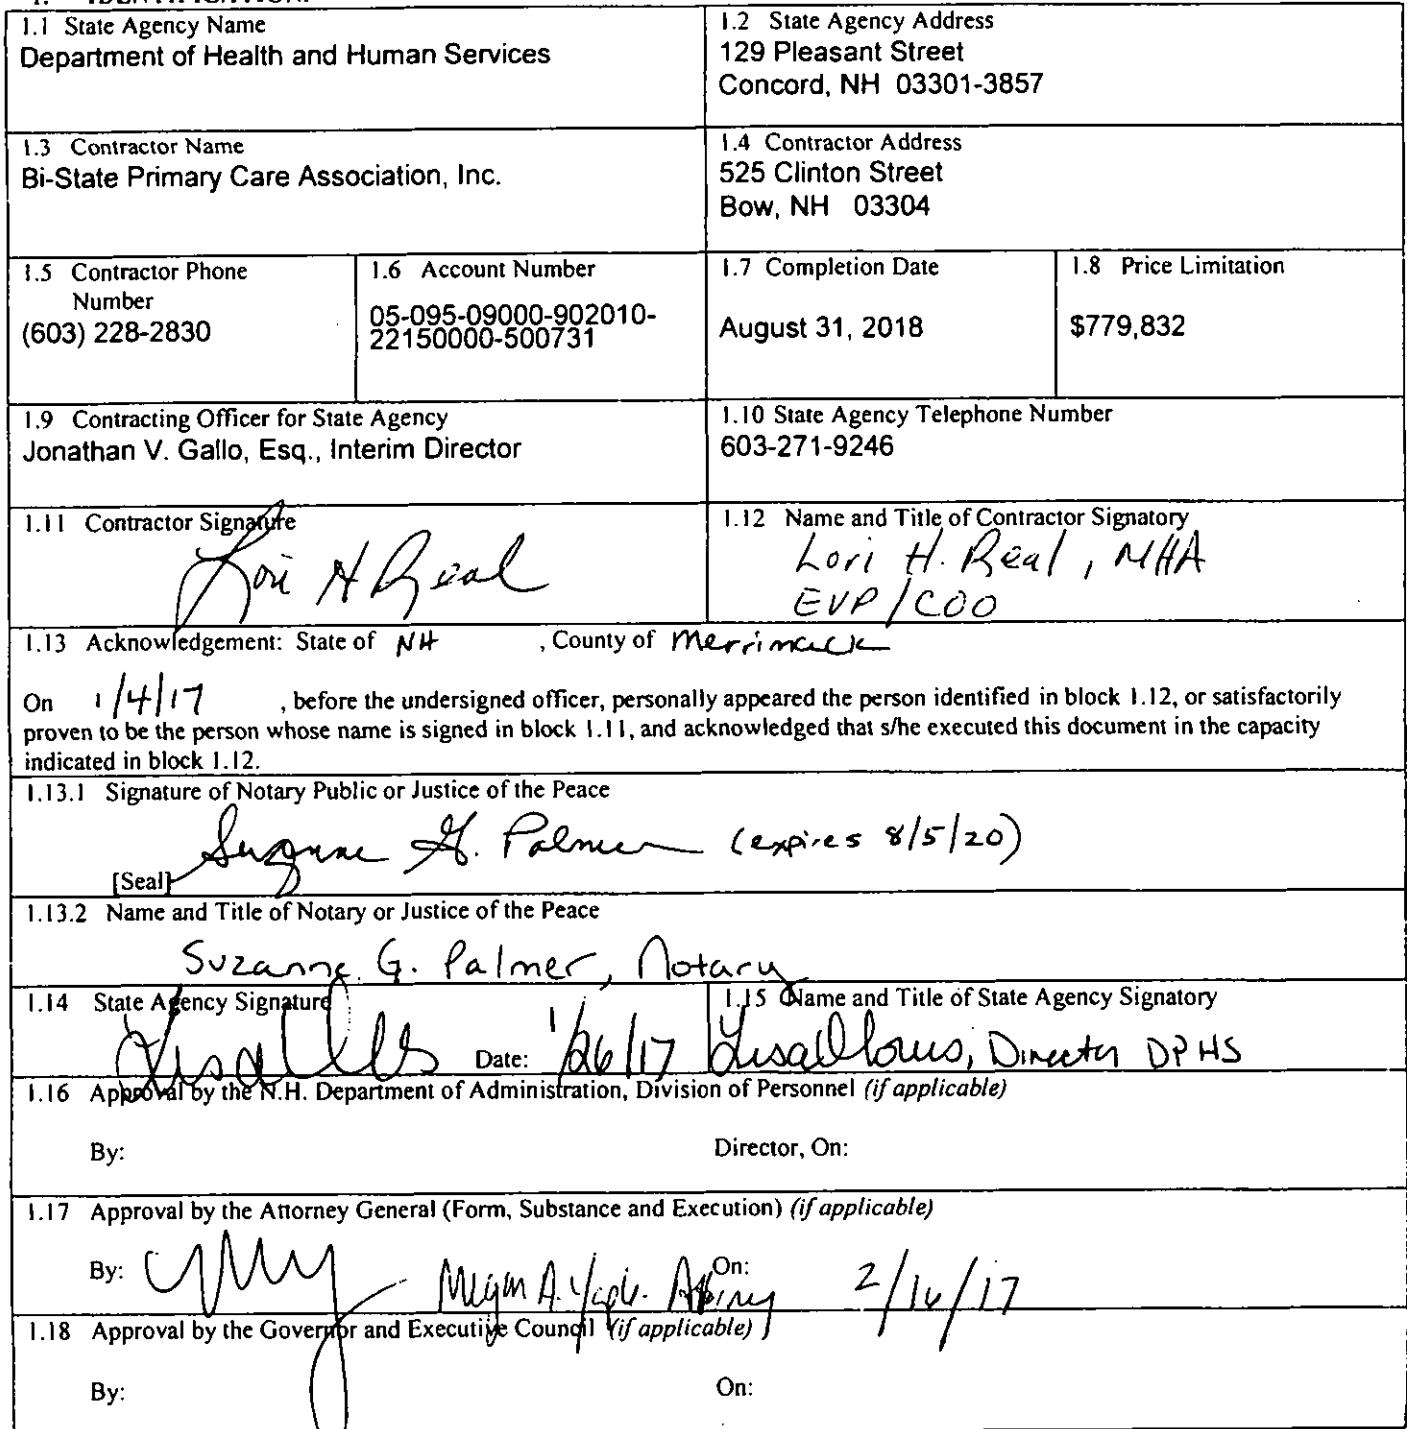 1.1 State Agency Name
Department of Health and Human Services
1.2 State Agency Address
129 Pleasant Street
Concord, NH 03301-3857
1.3 Contractor Name
Bi-State Primary Care Association, Inc.
1.4 Contractor Address
525 Clinton Street
Bow, NH 03304
1.5 Contractor Phone
Number
(603) 228-2830
1.6 Account Number
05-095-09000-902010-
22150000-500731
1.7 Completion Date
August 31, 2018
1.8 Price Limitation
$779,832
1.9 Contracting Officer for State Agency
Jonathan V. Gallo, Esq., Interim Director
1.10 State Agency Telephone Number
603-271-9246
1.11 Contractor Signature
Lori H Real
1.12 Name and Title of Contractor Signatory
Lori H. Real, MHA
EVP/COO
1.13 Acknowledgement: State of NH , County of Merrimack
On 1/4/17 , before the undersigned officer, personally appeared the person identified in block 1.12, or satisfactorily
proven to be the person whose name is signed in block 1.11, and acknowledged that s/he executed this document in the capacity
indicated in block 1.12.
1.13.1 Signature of Notary Public or Justice of the Peace
Suzanne G. Palmer (expires 8/5/20)
[Seal]
1.13.2 Name and Title of Notary or Justice of the Peace
Suzanne G. Palmer, Notary
1.14 State Agency Signature
Date: 1/26/17
1.15 Name and Title of State Agency Signatory
Director DPHS
1.16 Approval by the N.H. Department of Administration, Division of Personnel (if applicable)
By:
Director, On:
1.17 Approval by the Attorney General (Form, Substance and Execution) (if applicable)
By: Megan A. On: 2/16/17
1.18 Approval by the Governor and Executive Council (if applicable)
By:
On: